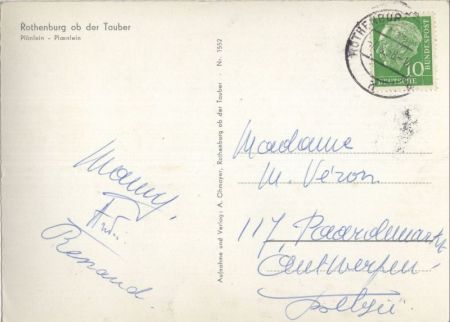 Rothenburg ob der Tauber
Plönlein - Plœnlein
ROTHENBURG
10
DEUTSCHE BUNDESPOST
Aufnahme und Verlag: A. Ohmayer, Rothenburg ob der Tauber - Nr. 1552
Mamy,
Renaud.
Madame
M. Véron
117, Paardenmarkt
Antwerpen
België